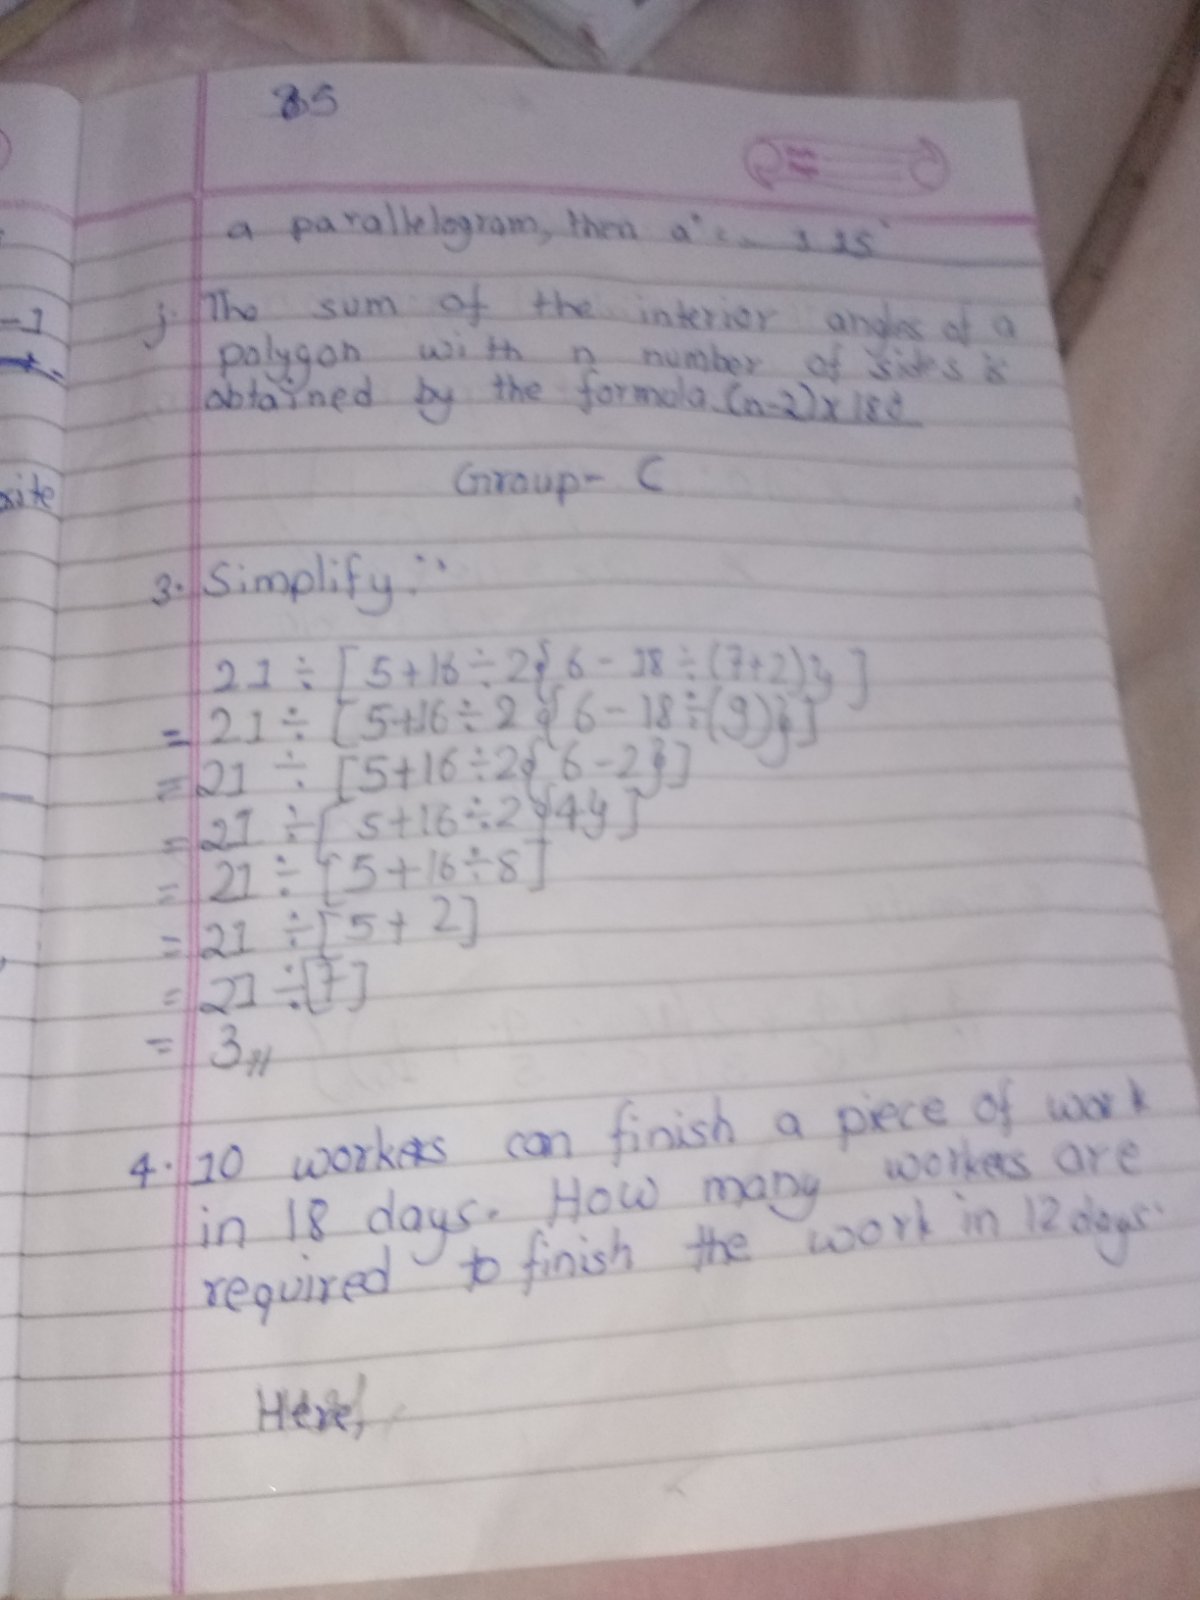 85
a parallelogram, then a° = 115°
j. The sum of the interior angles of a
polygon with n number of sides is
obtained by the formola (n-2)x180
Group- C
3. Simplify:
21÷[5+16÷2{6-18÷(7+2)}]
= 21÷[5+16÷2{6-18÷(9)}]
= 21÷[5+16÷2{6-2}]
= 21÷[5+16÷2{4}]
= 21÷[5+16÷8]
= 21÷[5+2]
= 21÷[7]
= 3
4. 10 workers can finish a piece of work
in 18 days. How many workers are
required to finish the work in 12 days.
Here,
-1
site